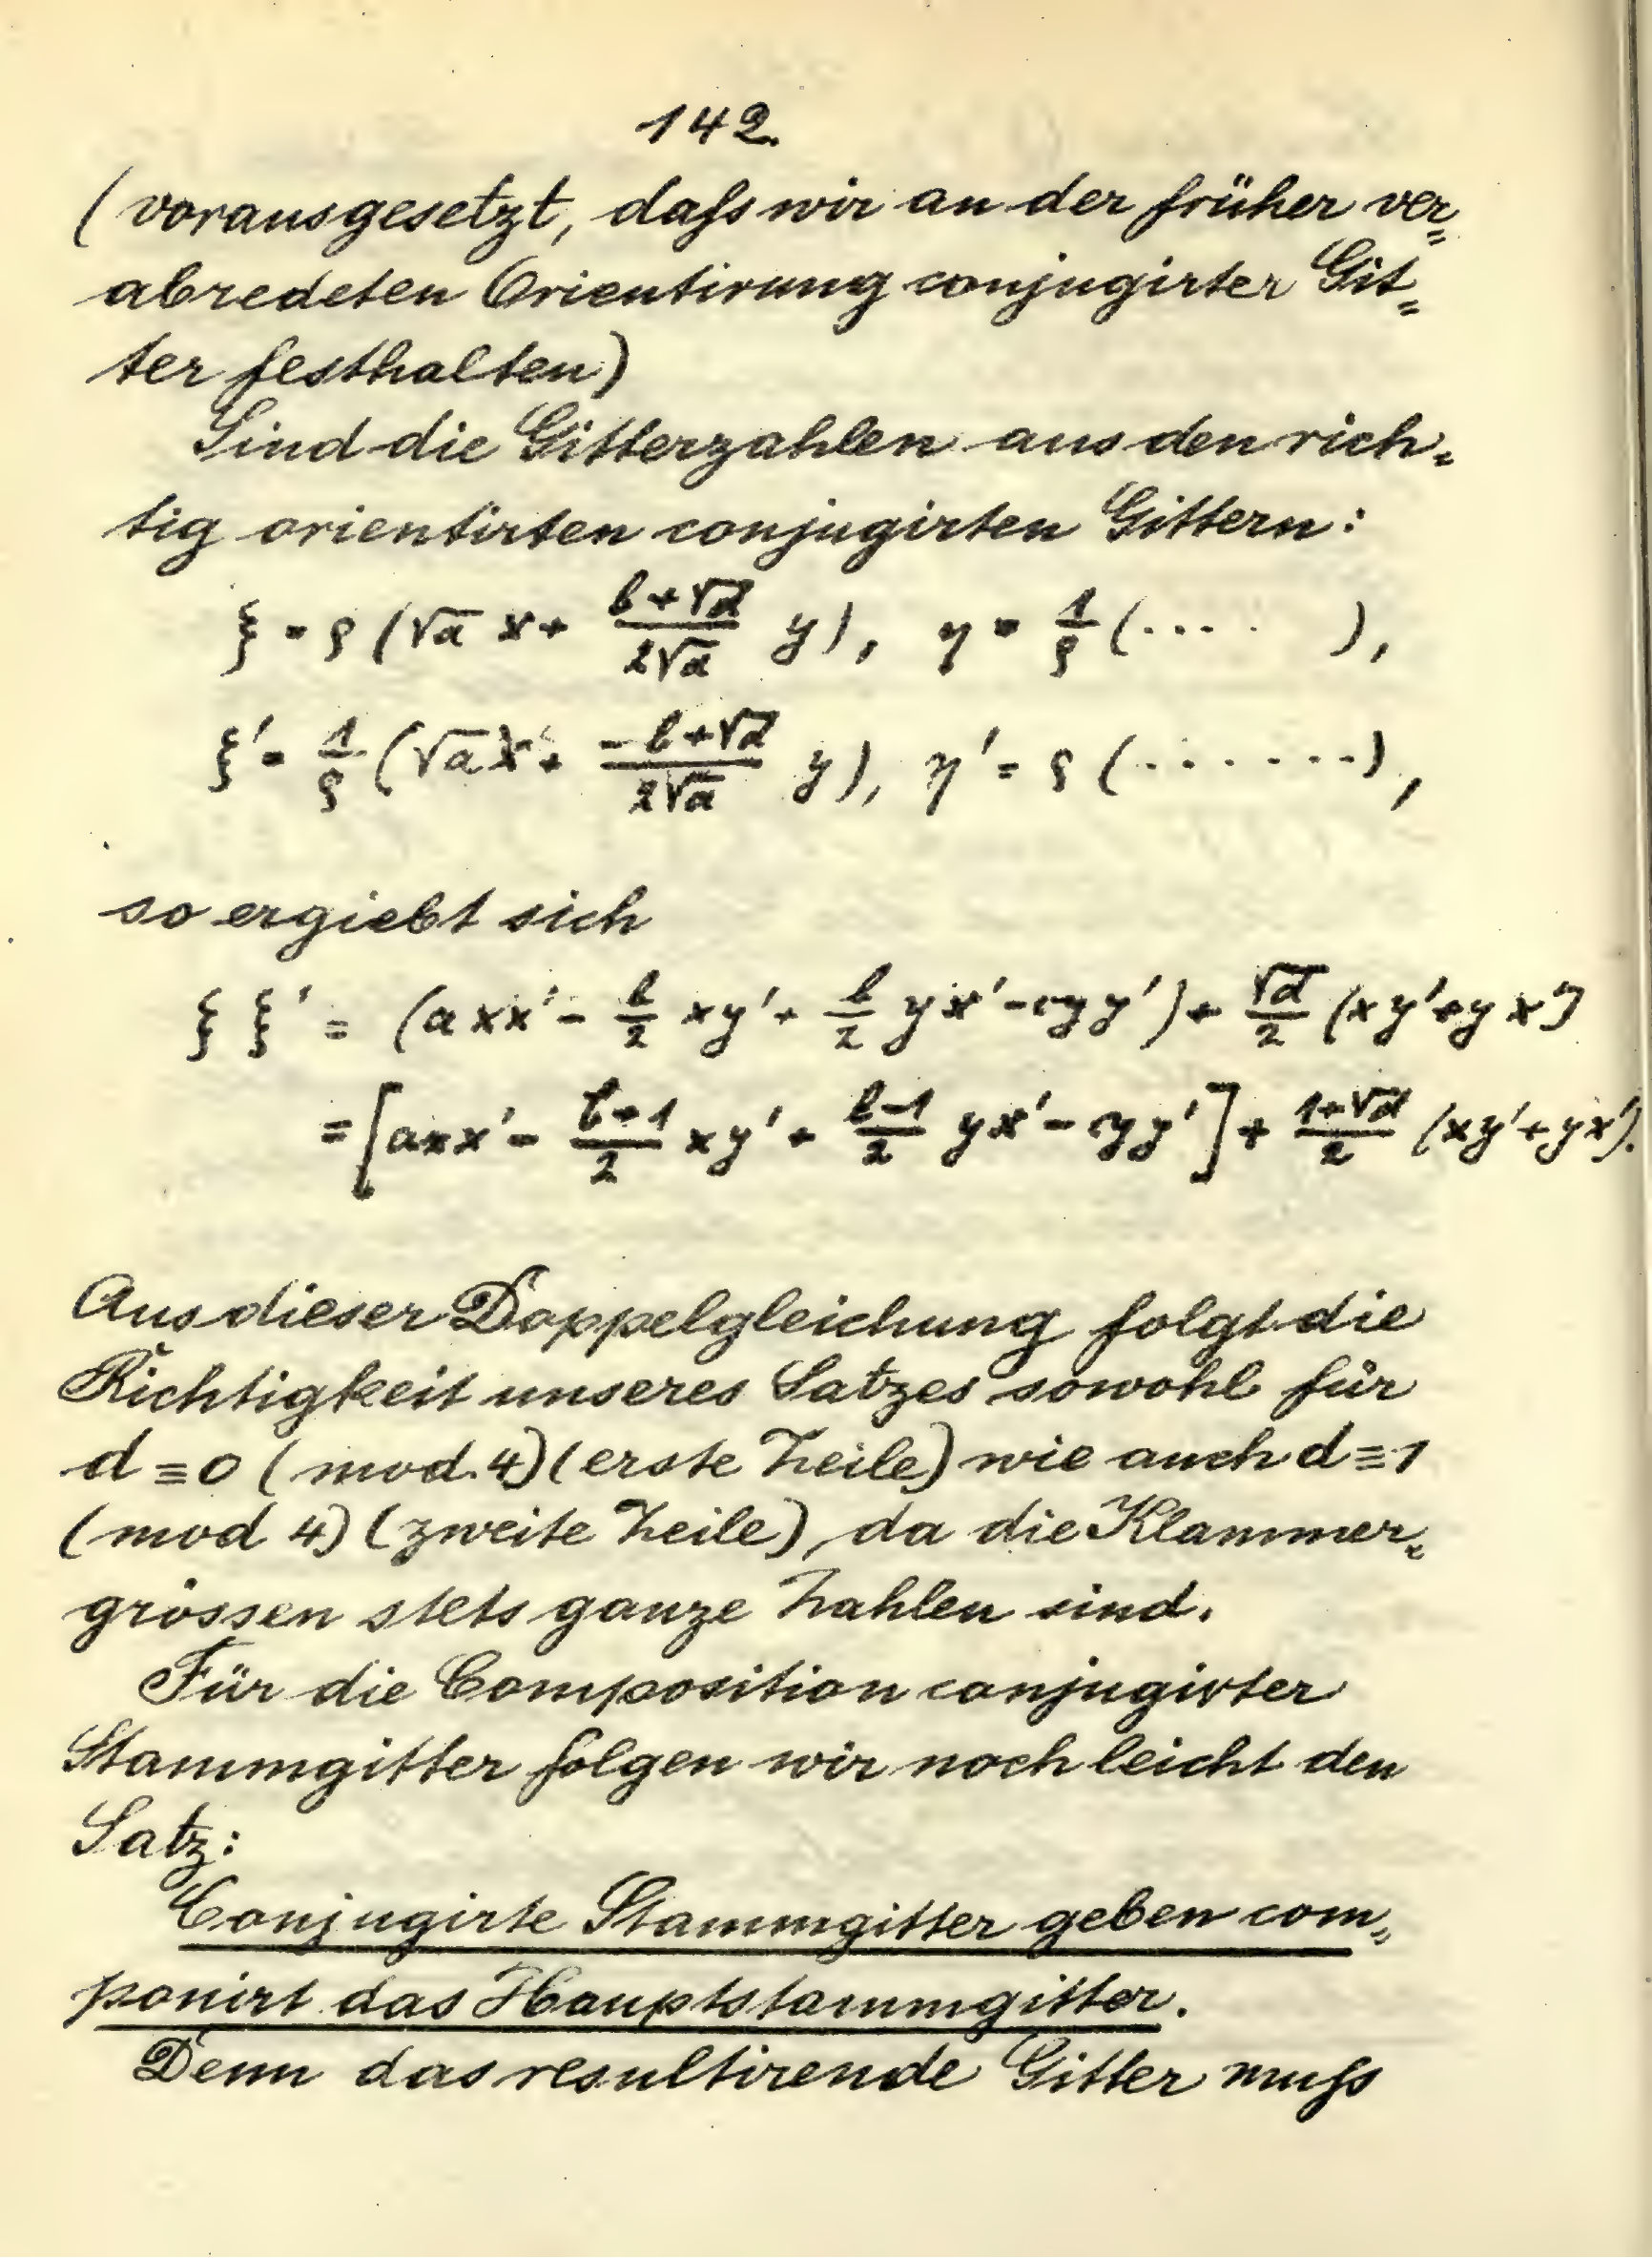 142.
(vorausgesetzt, daſs wir an der früher ver=
abredeten Orientirung conjugirter Git=
ter festhalten)
Sind die Gitterzahlen aus den rich=
tig orientirten conjugirten Gittern:
ξ = ϱ (√a x + (b+√d)/(2√a) y), η = 1/ϱ (.... ),
ξ' = 1/ϱ (√a x' + (-b+√d)/(2√a) y), η' = ϱ (.......),
so ergiebt sich
ξ ξ' = (axx' - b/2 xy' + b/2 yx' - cyy') + √d/2 (xy'+yx')
= [axx' - (b+1)/2 xy' + (b-1)/2 yx' - cyy'] + (1+√d)/2 (xy'+yx').
Aus dieser Doppelgleichung folgt die
Richtigkeit unseres Satzes sowohl für
d ≡ 0 (mod. 4) (erste Zeile) wie auch d ≡ 1
(mod 4) (zweite Zeile), da die Klammer=
grössen stets ganze Zahlen sind.
Für die Composition conjugirter
Stammgitter folgen wir noch leicht den
Satz:
Conjugirte Stammgitter geben com=
ponirt das Hauptstammgitter.
Denn das resultirende Gitter muſs